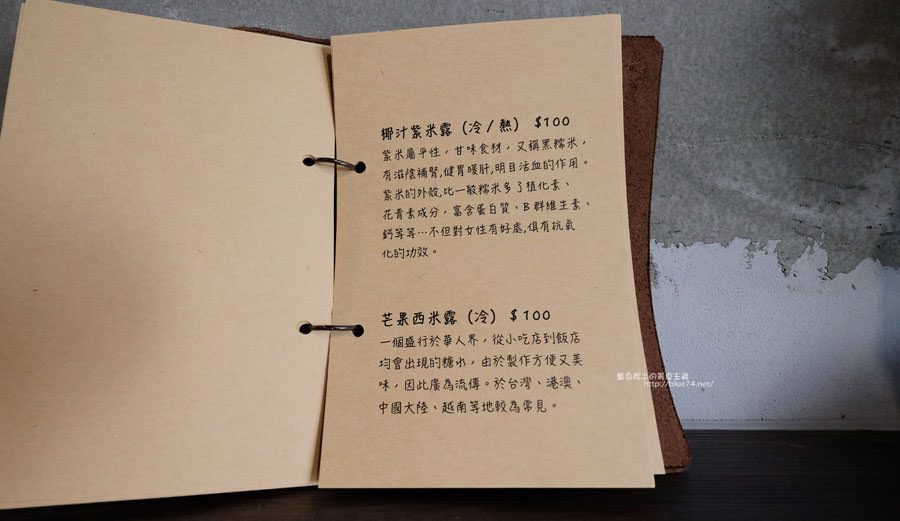 椰汁紫米露（冷/熱） $100
紫米屬平性，甘味食材，又稱黑糯米，
有滋陰補腎,健胃暖肝,明目活血的作用。
紫米的外殼,比一般糯米多了植化素、
花青素成分，富含蛋白質、B群維生素、
鈣等等…不但對女性有好處,俱有抗氧
化的功效。
芒果西米露（冷） $100
一個盛行於華人界，從小吃店到飯店
均會出現的糖水，由於製作方便又美
味，因此廣為流傳。於台灣、港澳、
中國大陸、越南等地較為常見。
http://blue74.net/